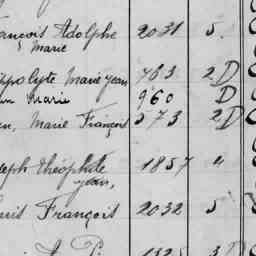 ançois Adolphe 2031 5.
Marie
ppolyte Marie Jean 763 2 D
Marie 960 D
en, Marie François 573 2 D
seph Théophile 1857 "
Jean,
uis François 2032 5